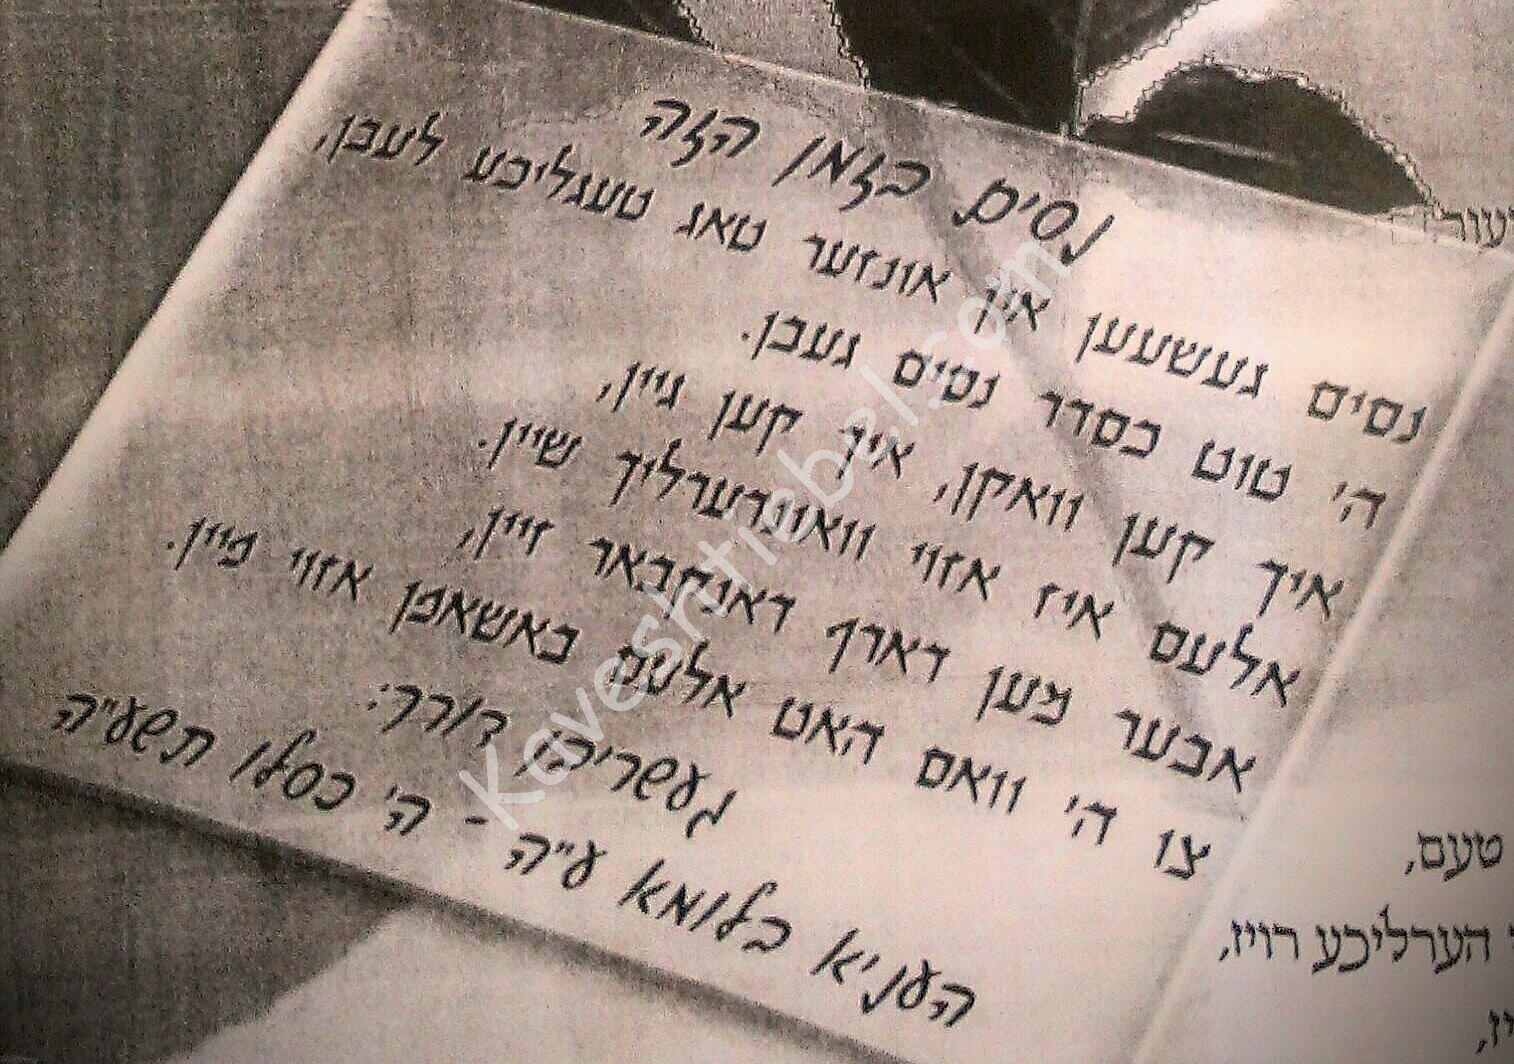 נסים בזמן הזה
נסים געשעען אין אונזער טאג טעגליכע לעבן,
ה' טוט כסדר נסים געבן.
איך קען וואקן, איך קען גיין,
אלעס איז אזוי וואונדערליך שיין.
אבער מען דארף דאנקבאר זיין,
צו ה' וואס האט אלעס באשאפן אזוי פיין.
געשריבן דורך:
העניא בלומא ע"ה - ה' כסלו תשע"ה
טעם,
הערליכע רויז,
Kaveshtiebel.com